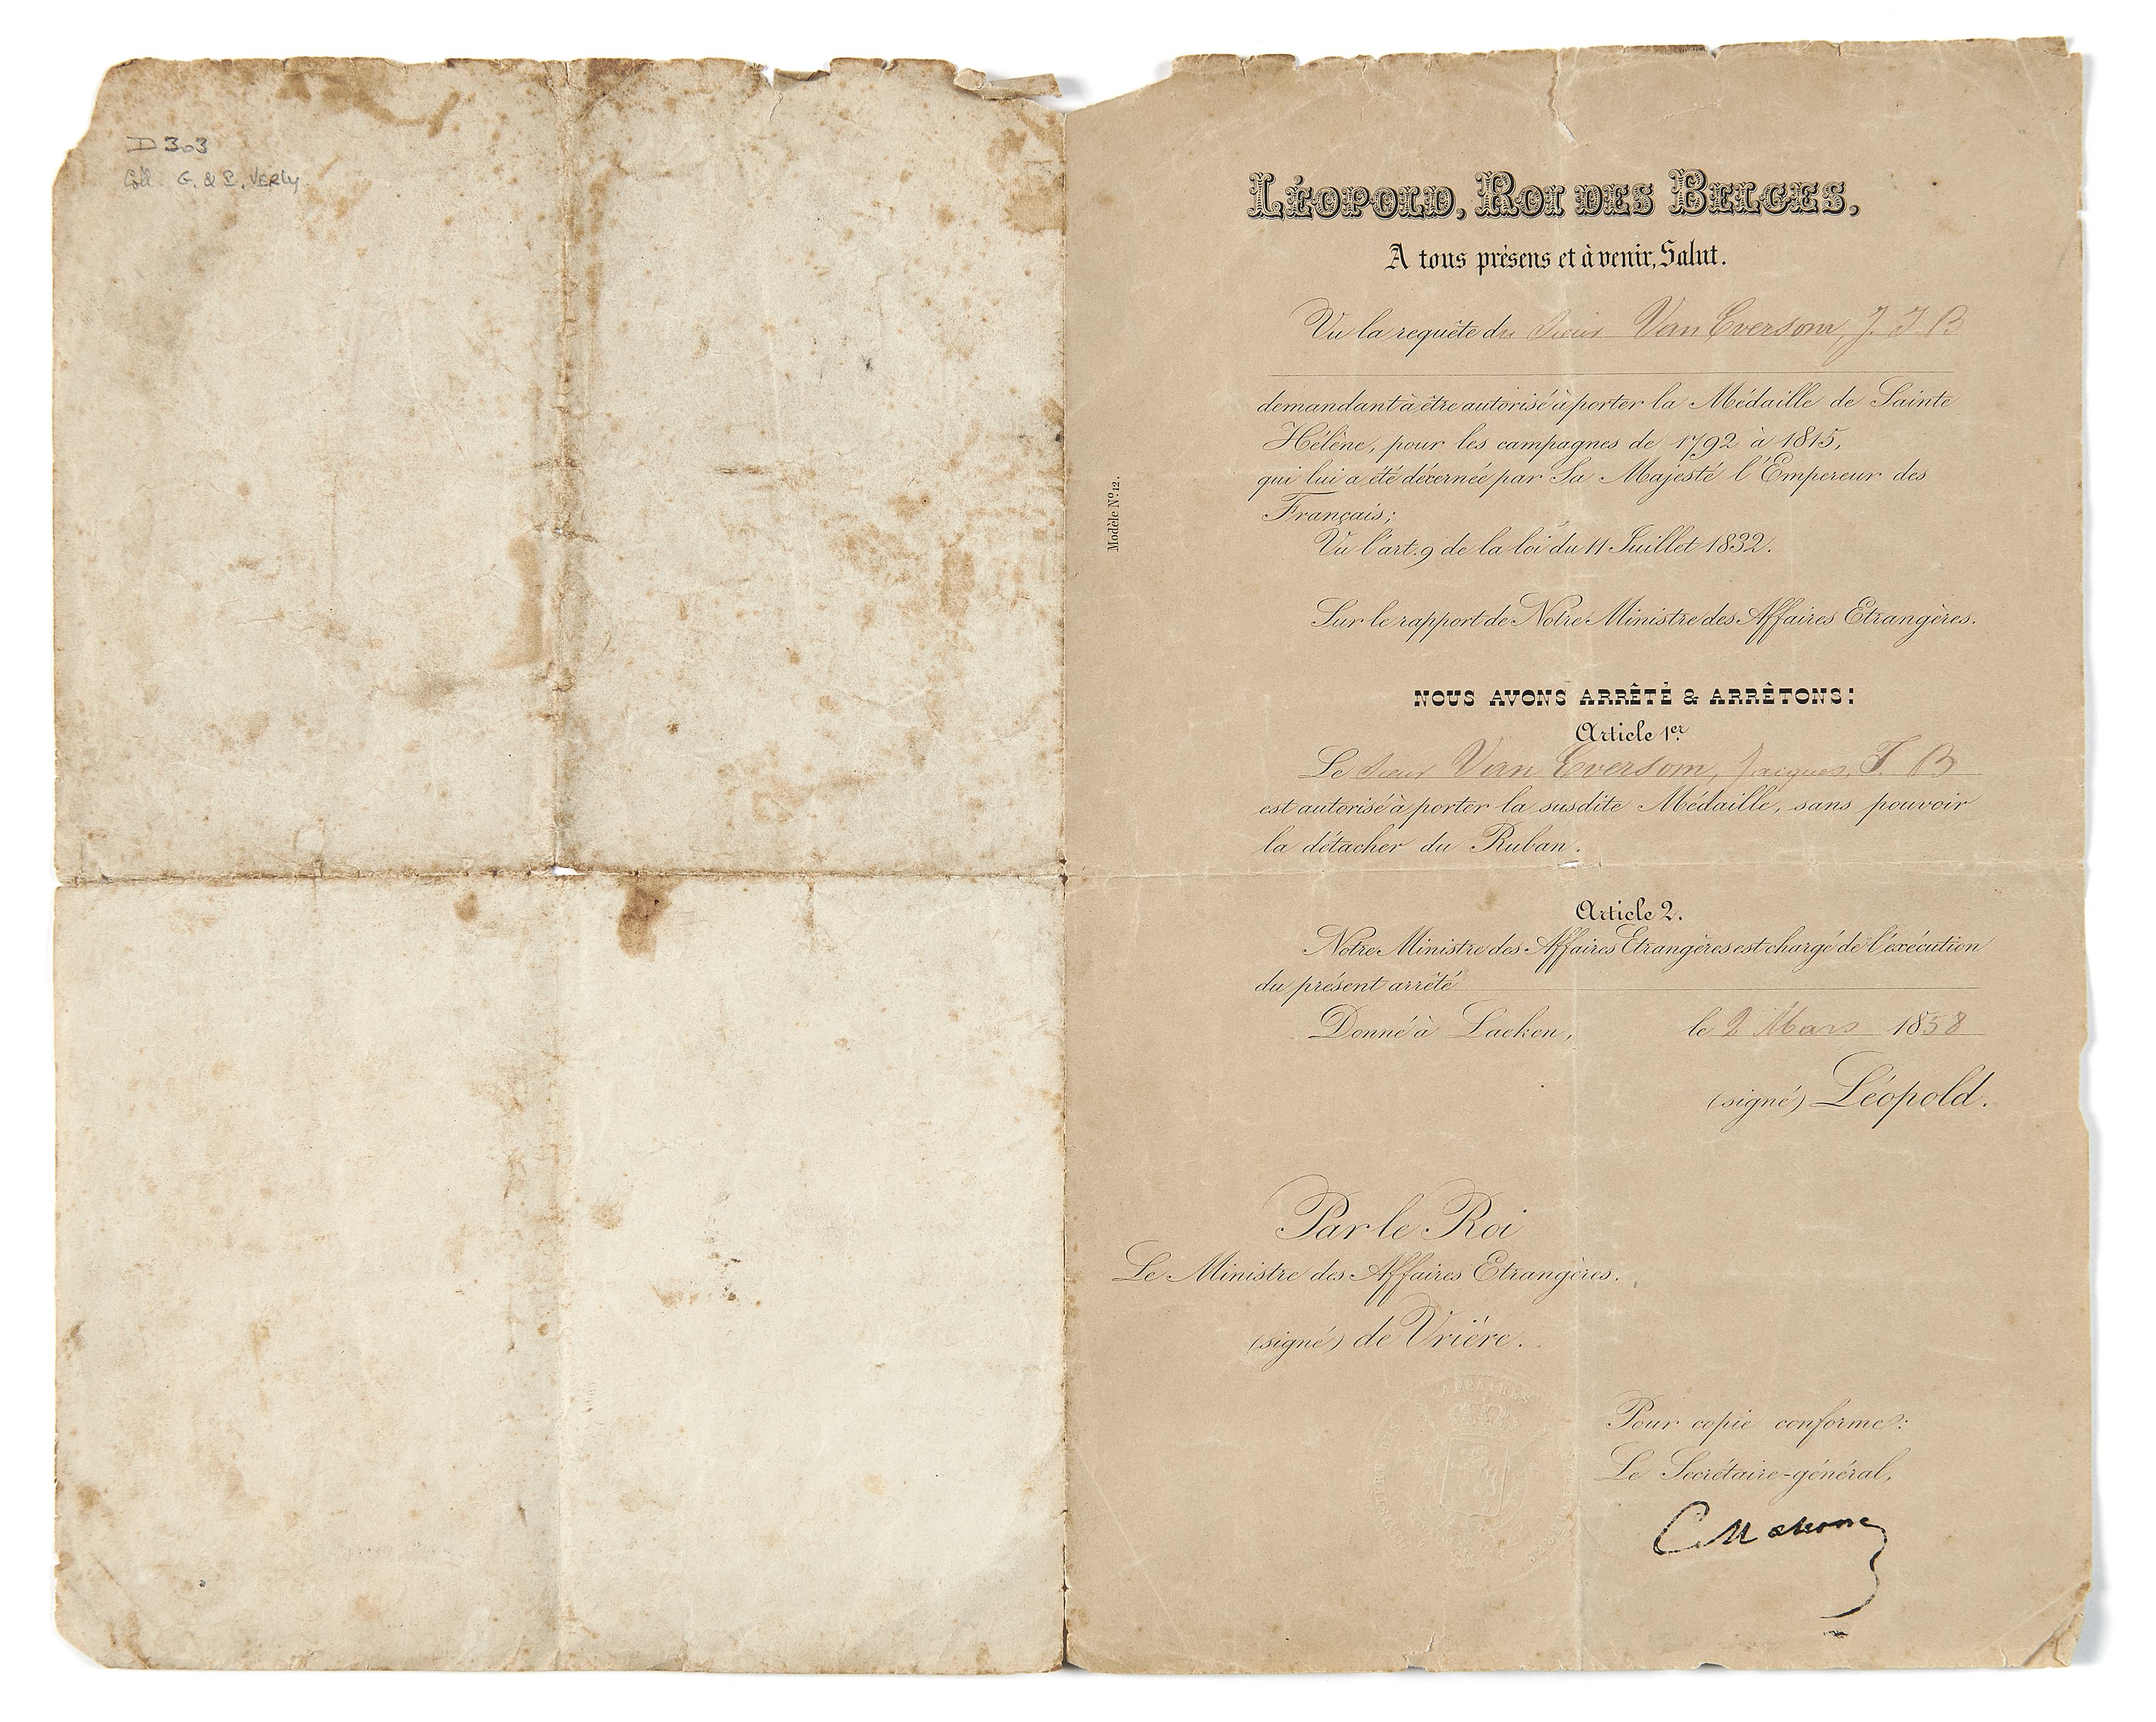 D 303
Coll. G. & P. VERLY
LÉOPOLD, ROI DES BELGES,
A tous présens et à venir, Salut.
Vu la requête du Sieur Van Eversom, J. J. B
demandant à être autorisé à porter la Médaille de Sainte
Hélène, pour les campagnes de 1792 à 1815,
qui lui a été décernée par Sa Majesté l'Empereur des
Français;
Vu l'art. 9 de la loi du 11 Juillet 1832.
Modèle No. 12.
Sur le rapport de Notre Ministre des Affaires Etrangères.
NOUS AVONS ARRÊTÉ & ARRÊTONS:
Article 1er
Le Sieur Van Eversom, Jacques, J. B
est autorisé à porter la susdite Médaille, sans pouvoir
la détacher du Ruban.
Article 2.
Notre Ministre des Affaires Etrangères est chargé de l'exécution
du présent arrêté
Donné à Laeken, le 2 Mars 1858
(signé) Léopold.
Par le Roi
Le Ministre des Affaires Etrangères.
(signé) de Vrière.
AFFAIRES
Pour copie conforme:
Le Secrétaire-général,